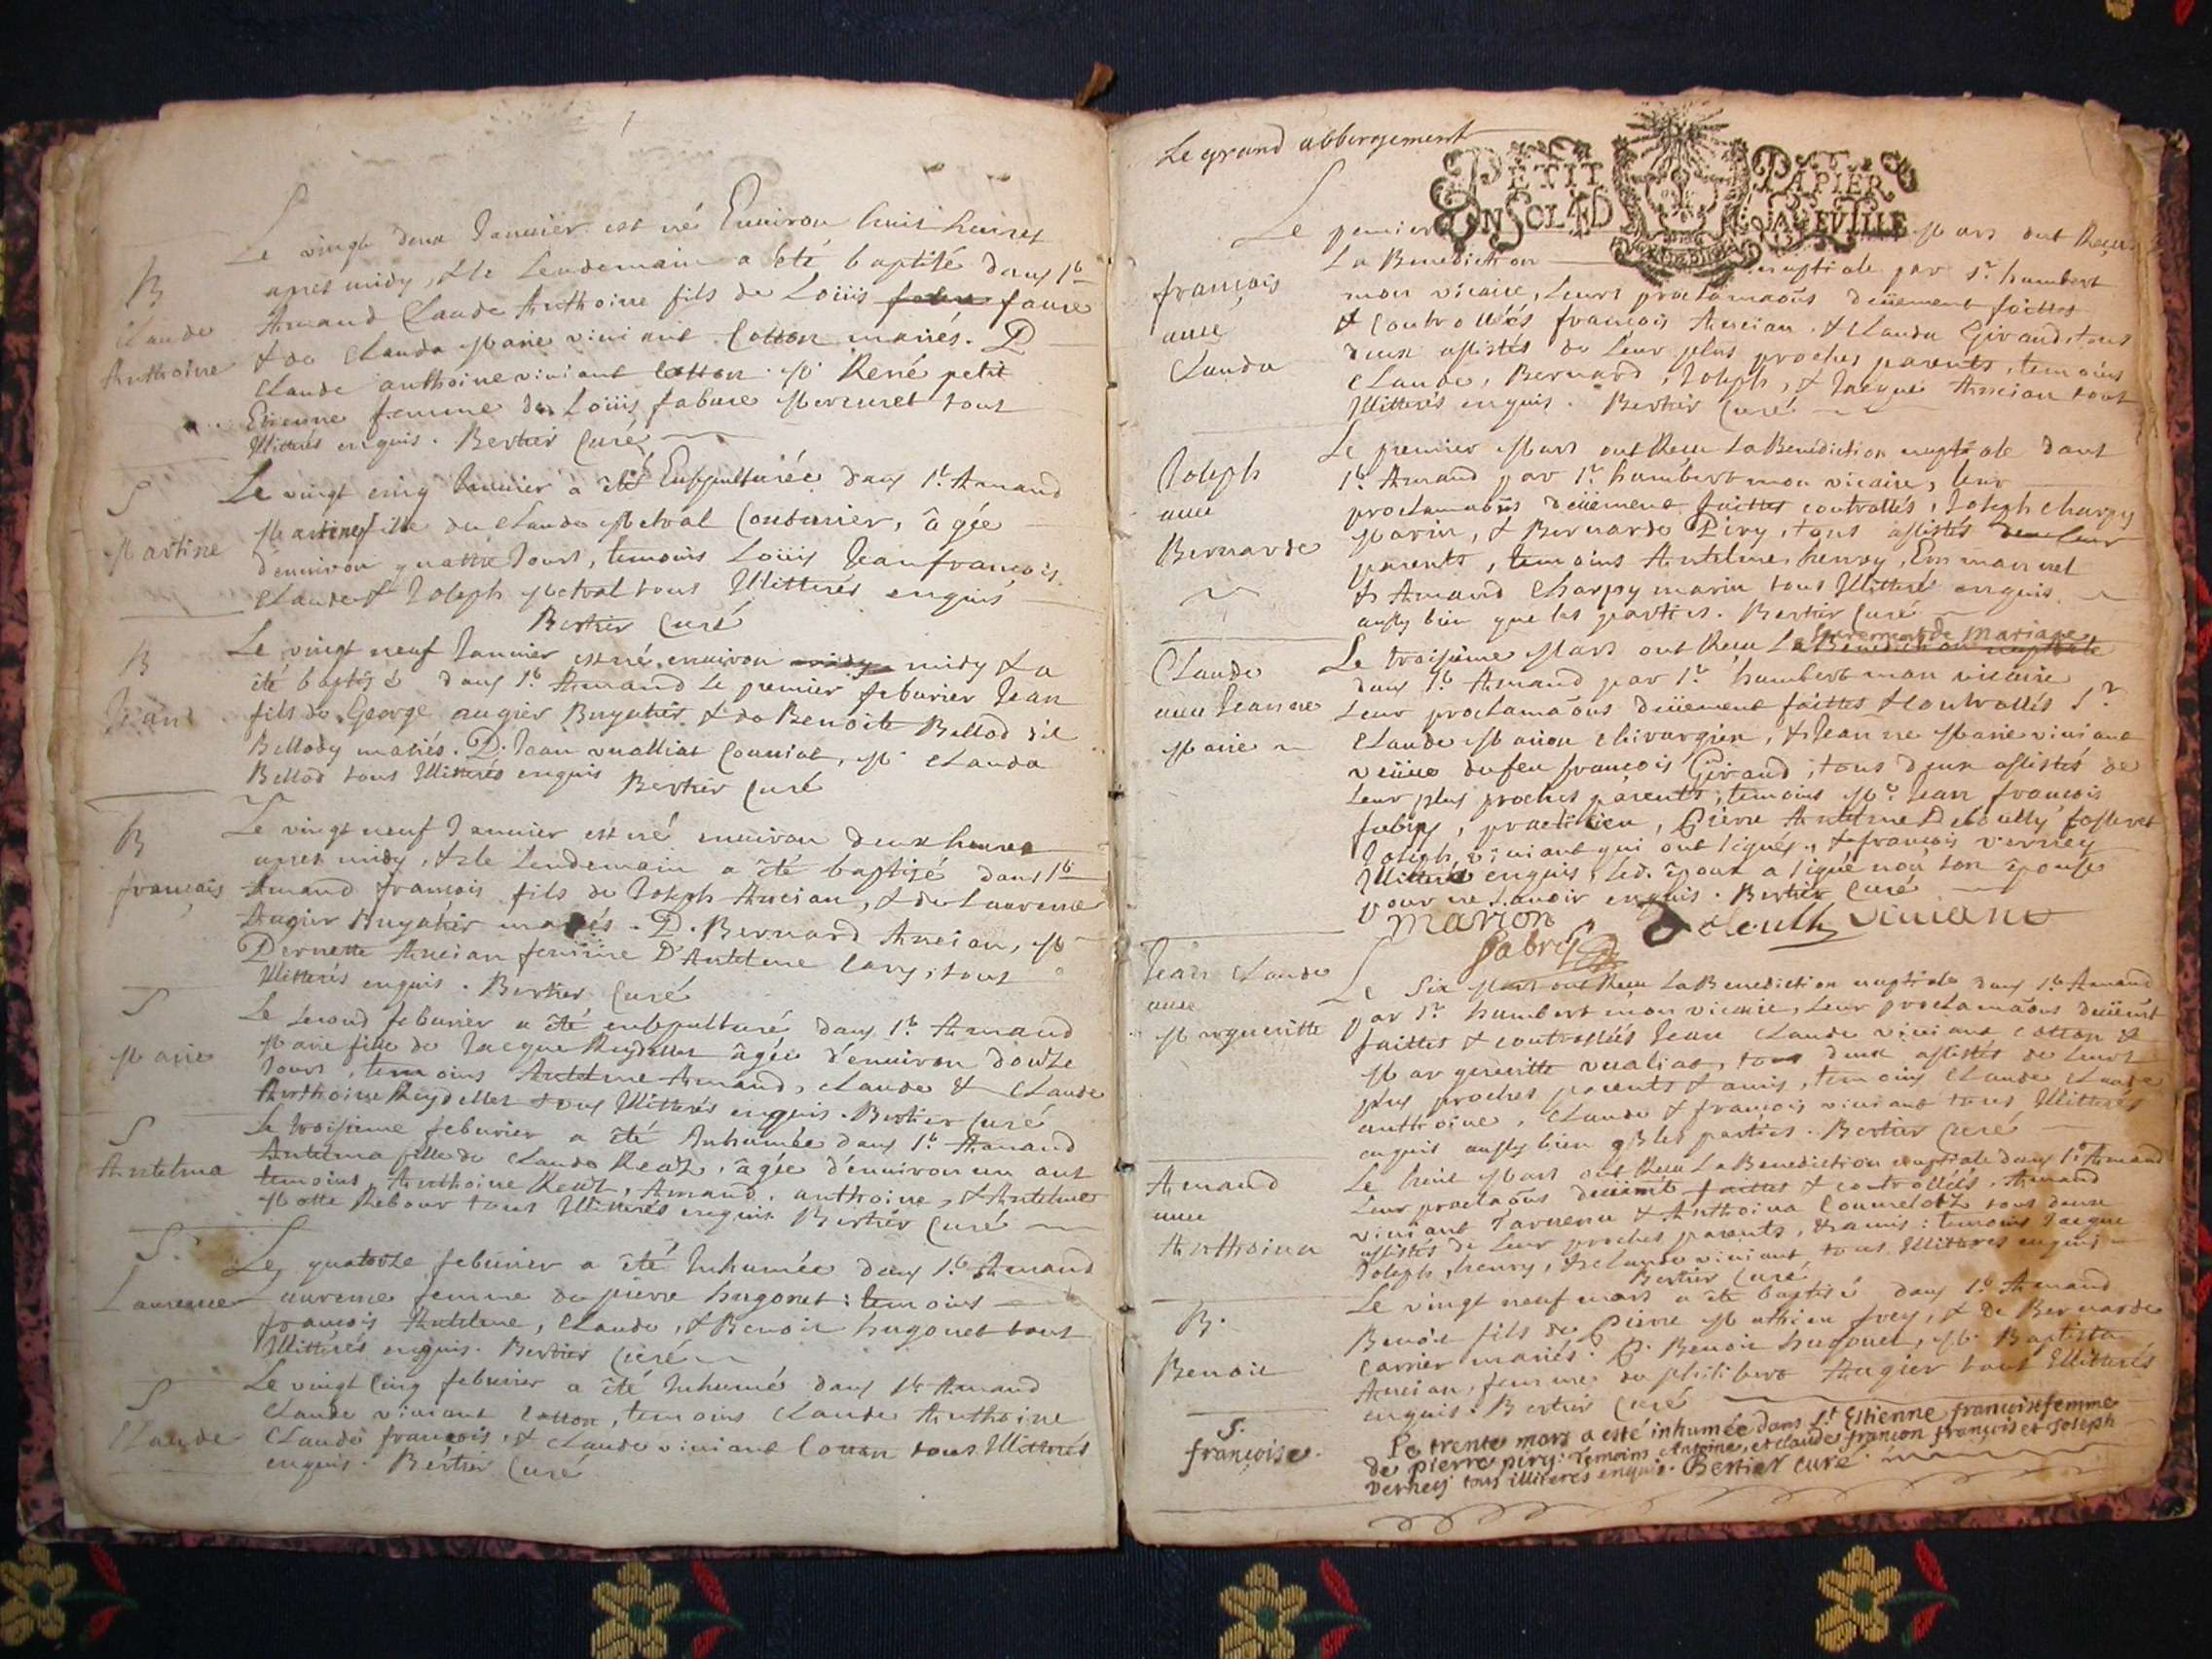 Le vingt deux Januier est né Enuiron huit heures
apres midy, & le Lendemain a été baptisé dans St
B
Claude
Anthoine
Amand Claude Anthoine fils de Loüis faure
& de Clauda Marie viuiant Cotton mariés. P
Claude anthoine viuiant Cotton. M René petit
Etienne femme de Loüis fabure Mermet tous
Illitterés enquis. Bertier Curé
S
Martine
Le vingt cinq Januier a été Ensepulturée dans St Amand
Martine fille de Claude Metral Couturier, âgée
d'enuiron quattre Jours, temoins Loüis Jean françois
Claude & Joseph Metral tous Illitterés enquis
Bertier Curé
B
Jean
Le vingt neuf Januier est né enuiron midy & a
été baptisé dans St Amand Le premier feburier Jean
fils de George augier Bugatier & de Benoite Bellod dit
Bellody mariés. P. Jean vualliat Couuiat, M Clauda
Bellod tous Illitterés enquis Bertier Curé
B
françois
Le vingt neuf Januier est né enuiron deux heures
apres midy, & le Lendemain a été baptisé dans St
Amand françois fils de Joseph Ancian, & de Laurence
Augier Bugatier mariés. P. Bernard Ancian, M
Pernette Ancian femme D'Antelme Cary, tous
Illitterés enquis. Bertier Curé
S
Marie
Le second feburier a été ensepulturé dans St Amand
Marie fille de Jacque Reydellet âgée d'enuiron douze
Jours, temoins Antelme Armand, Claude & Claude
Anthoine Reydellet tous Illitterés enquis. Bertier Curé
S
Antelma
Le troisieme feburier a été Inhumée dans St Amand
Antelma fille de Claude Reaz, âgée d'enuiron un ans
temoins Anthoine Reaz, Amand, anthoine, & Antelme
Motte Rebour tous Illitterés enquis Bertier Curé
S.
Laurence
Le quatorze feburier a été Inhumée dans St Amand
Laurence femme de pierre hugonet: temoins
françois Antelme, Claude, & Benoit hugonet tous
Illitterés enquis. Bertier Curé
S
Claude
Le vingt cinq feburier a été Inhumé dans St Amand
Claude viuiant Cotton, temoins Claude Anthoine
Claude françois, & Claude viuiant Cotton tous Illitterés
enquis. Bertier Curé
Le grand abbergement
PETIT PAPIER
EN SOL 4 D LA FEVILLE
Le pemier Mars ont Receu
La Benediction nuptiale par Sr humbert
françois
auec
Clauda
mon vicaire, Leurs proclamaõns deüement faittes
& Controllées françois Ancian & Clauda Girand, tous
deux assistés de Leur plus proches parents, temoins
Claude, Bernard, Joseph, & Jacque Ancian tous
Illitterés enquis. Bertier Curé
Joseph
auec
Bernarde
Le premier Mars ont Receu La Benediction nuptiale dans
St Amand par Sr humbert mon vicaire, leur
proclamaõns deüement faittes controllés, Joseph charpy
Marin, & Bernarde Piry, tous assistés de leur
parents, temoins Antelme, henry, Emmanuel
& Amand Charpy marin tous Illitteré enquis
aussy bien que les parties. Bertier Curé
Claude
auec Jeanne
Marie
Le troisieme Mars ont Receu Le sacrement de Mariage
dans St Amand par Sr humbert mon vicaire
Leur proclamaõns deüement faittes & controllés Sr
Claude Marion chirurgien, & Jeanne Marie viuiant
veüue de feu françois Girand, tous deux assistés de
Leur plus proches parents; temoins Mr Jean françois
fabry, practicien, Pierre Antelme
Joseph viuiant qui ont signés, & françois verney
Illitteré enquis, led. Époux a signé non son épouse
pour ne scauoir enquis. Bertier Curé
Marion
viuiant
fabry
Jean Claude
auec
Margueritte
Le Six Mars ont Receu La Benediction nuptiale dans St Amand
par Sr humbert mon vicaire, Leur proclamaõns
faittes & controllés Jean Claude viuiant cotton &
Margueritte vualiat, tous deux assistés de Leurs
plus proches parents & amis, temoins Claude Claude
anthoine, Claude & françois viuiant tous Illitterés
enquis aussy bien que les parties. Bertier Curé
Amand
auec
Anthoina
Le huit Mars ont Receu La Benediction nuptiale dans St Amand
Leur proclaõns faittes & controllés, Amand
viuiant Tauernu & Anthoina tous deux
assistés de Leur proches parents, & amis: temoins Jacque
Joseph, henry, & Claude viuiant tous Illitterés enquis
Bertier Curé
B.
Benoit
Le vingt neuf mars a été baptisé dans St Amand
Benoit fils de Pierre Mathieu frey, & de Bernarde
Carrier mariés. P. Benoit hugonet, M. Baptista
Ancian, femme de philibert Augier tous Illitterés
enquis. Bertier Curé
S.
françoise.
Le trente mars a esté inhumée dans St Estienne françoise femme
de pierre piry. Temoins Antoine, et claude françon françois et Joseph
Verney tous illiteres enquis. Bertier curé